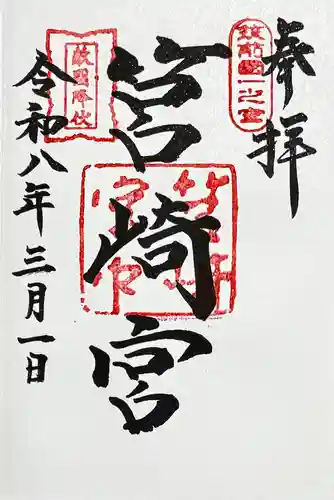 奉拝
筑前國一之宮
筥崎宮
筥崎宮印
敵國降伏
令和八年三月一日